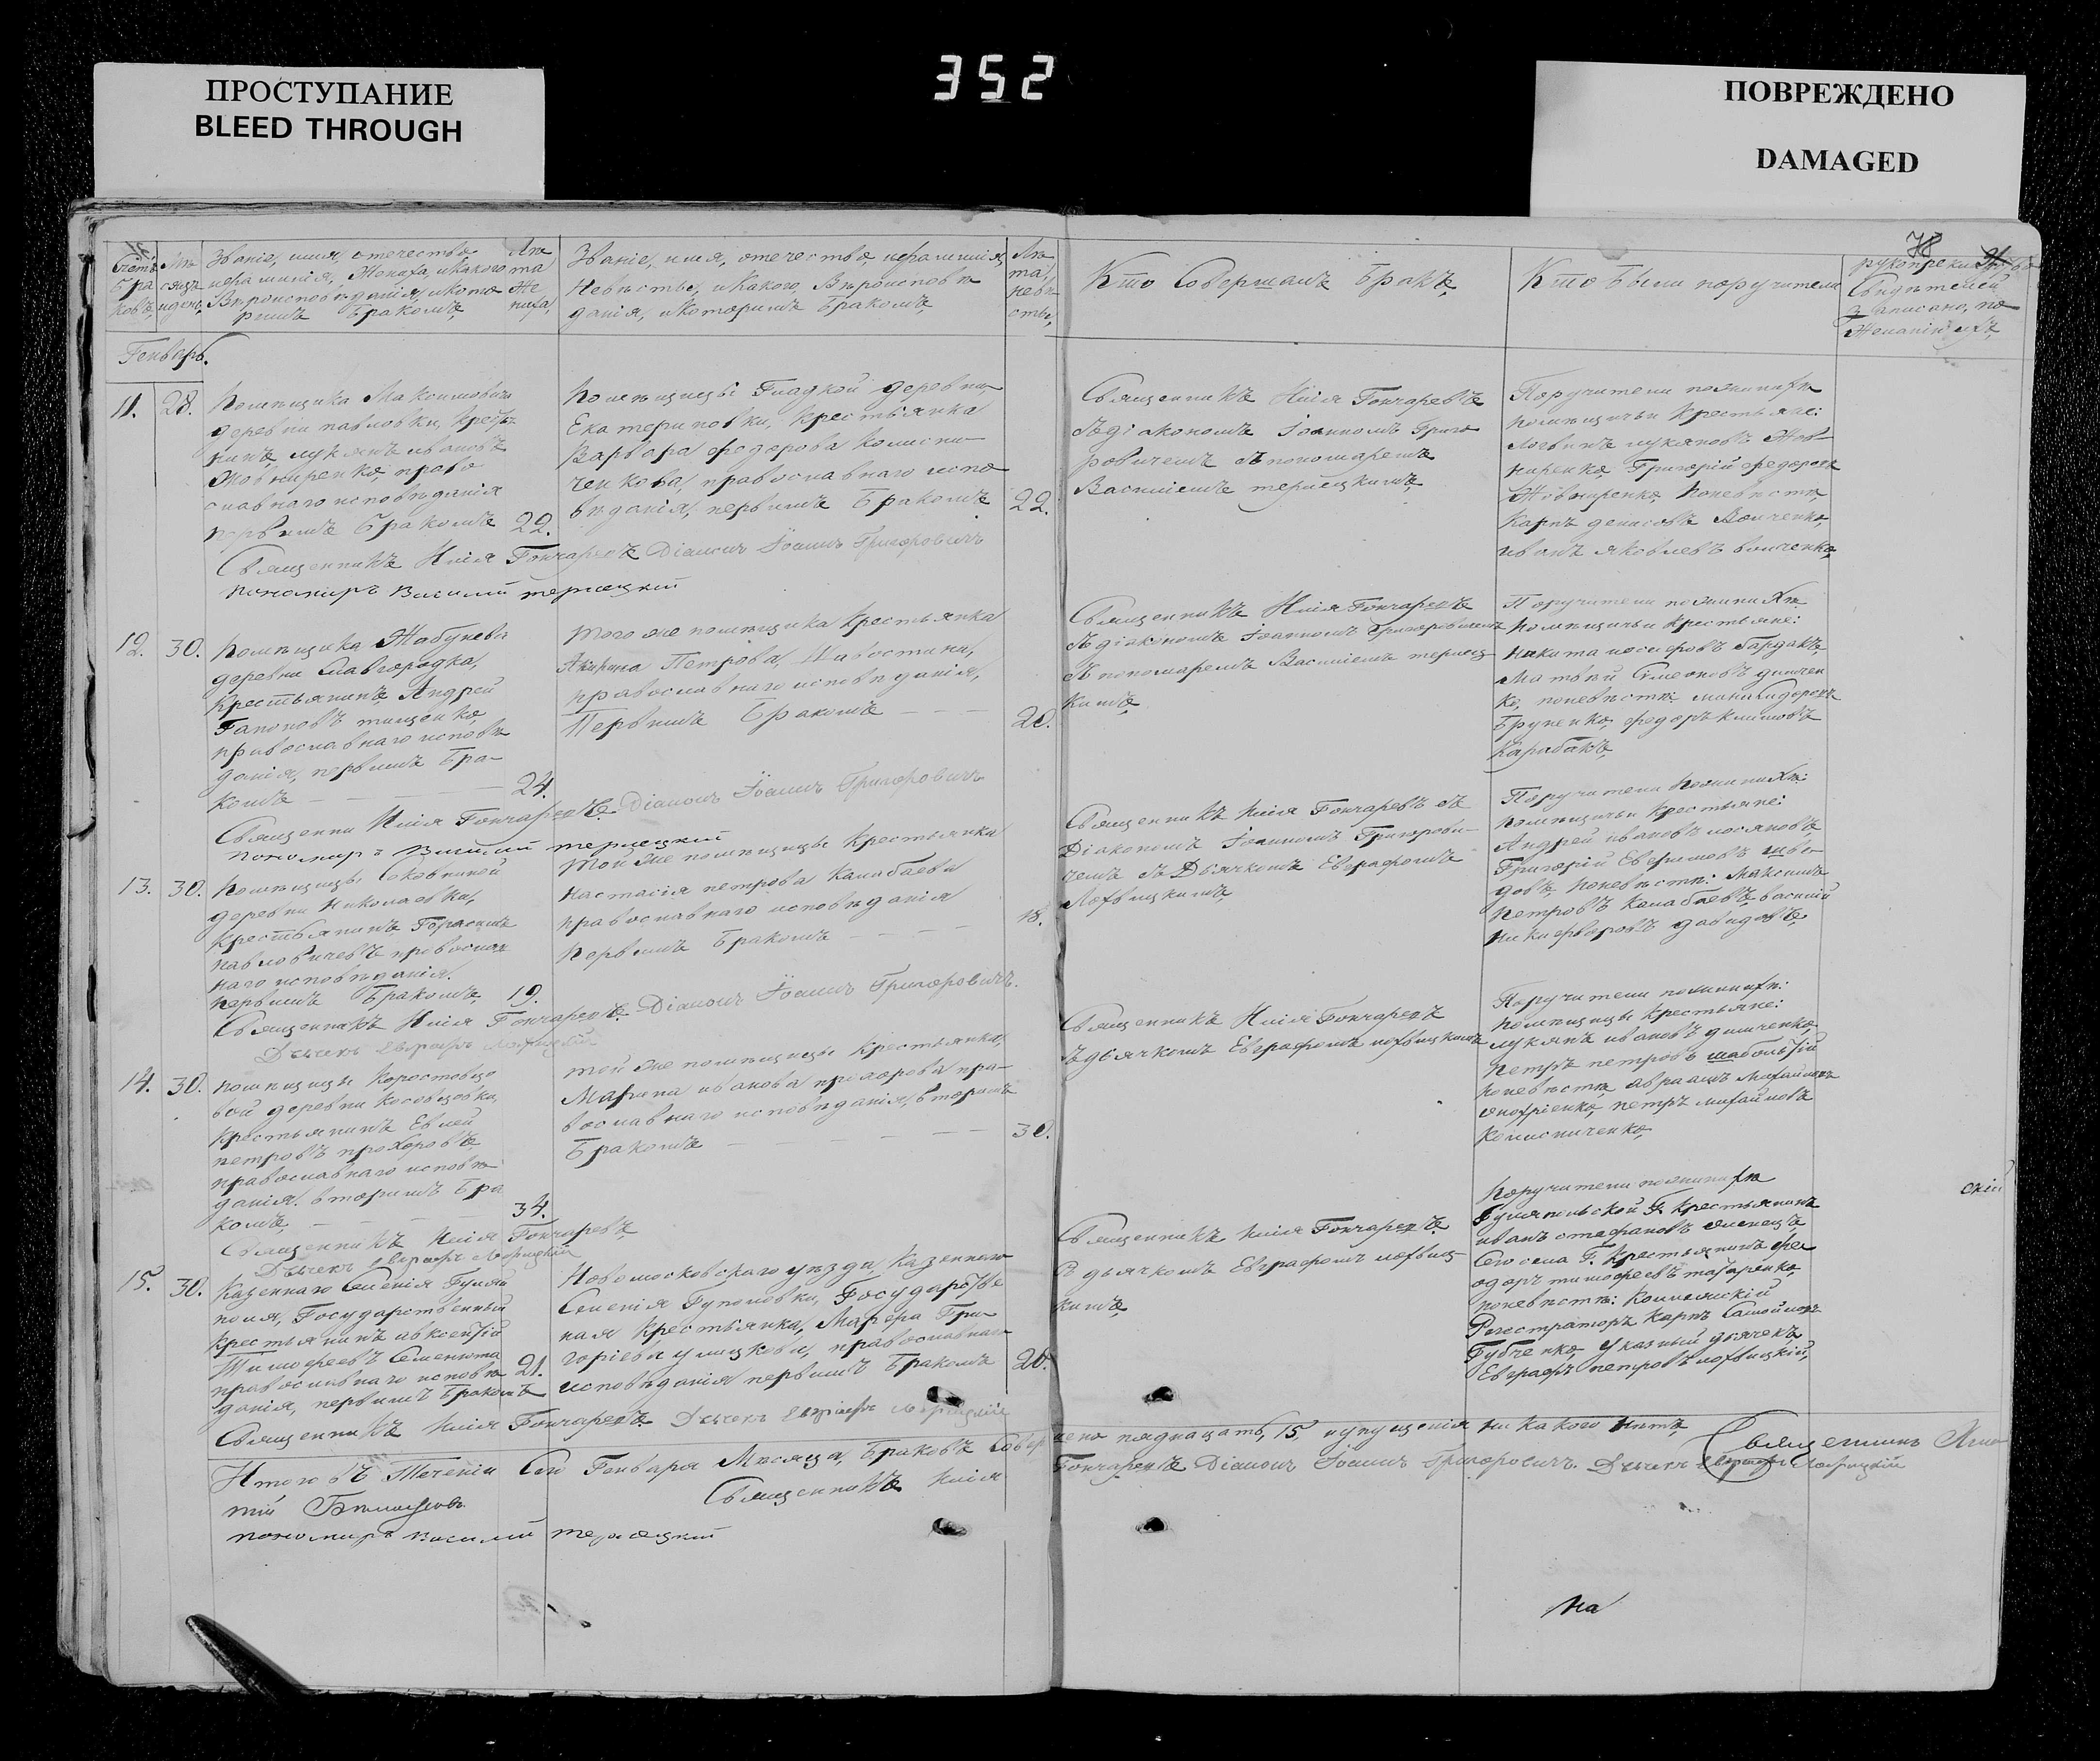 352
ПРОСТУПАНИЕ
BLEED THROUGH
ПОВРЕЖДЕНО
DAMAGED
78
Счетъ браковъ,
Званіе, имя, отечество,
фамилія, Жениха, и какого
Вѣроисповѣданія, и кото
римъ Бракомъ,
Лѣта Жениха,
Званіе, имя, отечество, фамилія,
Невѣсты, и какого, Вѣроисповѣ
данія, и которимъ Бракомъ,
Лѣта, невѣсты,
Кто Совершалъ Бракъ,
Кто были поручители
Свидѣтелей
записано, по
Желанію ихъ,
Генварь.
11. 28.
Помѣщика Максимовича
деревни павловки, Крестья
нинъ лукянъ ивановъ
Жовниренко, право
славнаго исповѣданія
первимъ Бракомъ 22.
Помѣщицы Гладкой деревни
Екатериновки, крестьянка
Варвара федорова Колисни
ченкова, православнаго испо
вѣданія, первимъ Бракомъ 22.
Священникъ Илія Гончаревъ
съ діакономъ Іоанномъ Григо
ровичемъ и пономаремъ
Василіемъ терлецкимъ,
Поручители по женихѣ
помѣщичьи крестьяне:
лукяновъ Жов
ниренко, Григорій федоровъ
Жовниренко, по невѣстѣ
Карпъ денисовъ Волченко
иванъ яковлевъ волченко,
Священникъ Илія Гончаревъ Діаконъ Іоаннъ Григоровичъ
пономарь Василий терлецкий
12. 30.
Помѣщика Жабунева
деревни Славгородка,
Крестьянинъ Андрей
Гапоновъ тищенко,
православнаго исповѣ
данія, первимъ Бра
комъ 24.
того же помѣщика крестьянка
Петрова,
православнаго исповѣданія,
Первимъ Бракомъ 20.
Священникъ Илія Гончаревъ
съ діакономъ Іоанномъ Григоровичемъ
и пономаремъ Василіемъ терлец
кимъ,
Поручители по женихѣ
помѣщичьи крестьяне:
Никита иосифовъ Гардакъ,
Матвѣй Симеоновъ димчен
ко, по невѣстѣ
Бруненко, федоръ климовъ
Карабакъ,
Священни Илія Гончаревъ. Діаконъ Іоаннъ Григоровичъ
пономарь Василий терлецкий
13. 30.
Помѣщицы
деревни Николаевки,
крестьянинъ Герасимъ
павловичевъ православ
наго исповѣданія.
первимъ Бракомъ, 19.
Той же помѣщицы крестьянка
настасія петрова Калабаева
православнаго исповѣданія
первимъ Бракомъ 18.
Священникъ Илія Гончаревъ съ
Діакономъ Іоанномъ Григорови
чемъ и Дьячкомъ Евграфомъ
Лохвицкимъ,
Поручители по женихѣ:
помѣщичьи крестьяне:
Андрей ивановъ
Григорій Ефимовъ
по невѣстѣ: Максимъ
петровъ Калабаевъ, василий
никифоровъ давидовъ,
Священникъ Илія Гончаревъ. Діаконъ Іоаннъ Григоровичъ.
Дьячекъ Евграфъ Лохвицкій
14. 30.
помѣщицы Коростовцо
вой деревни Косовцовки,
крестьянинъ Евсей
петровъ прохоровъ,
православнаго исповѣ
данія. вторимъ Бра
комъ, 34.
той же помѣщицы крестьянка,
Марина иванова пра
вославнаго исповѣданія, вторимъ
Бракомъ 30.
Священникъ Илія Гончаревъ
съ дьячкомъ Евграфомъ лохвицкимъ
Поручители по женихѣ:
помѣщицы крестьяне:
лукянъ ивановъ димченко,
петръ петровъ
по невѣстѣ, авраамъ михайловъ
онофріенко, петръ михайловъ
Колисниченко,
Священникъ Илія Гончаревъ,
Дьячекъ Евграфъ Лохвицкій
15. 30.
Казеннаго Селенія Гуляй
поля, Государственный
крестьянинъ авксентій
Тимофеевъ Семенюта
православнаго исповѣ 21.
данія, первимъ Бракомъ
Новомосковскаго уезда, казеннаго
Селенія Гуполовки, Государстве
ная крестьянка, Марфа Гри
горіева улицкова, православнаго
исповѣданія первимъ Бракомъ 20.
Священникъ Илія Гончаревъ
съ дьячкомъ Евграфомъ лохвиц
кимъ,
Поручители по женихѣ
Гуляпольской Г. крестьянинъ
иванъ стефановъ
Сего села Г. крестьянинъ фе
одоръ тимофеевъ
по невѣстѣ: Коллежский
Регистраторъ Карпъ Самойловъ
Губченко, указный дьячекъ
Евграфъ петровъ лохвицкій,
скій
Священникъ Илія Гончаревъ. Дьячекъ Евграфъ Лохвицкій
Итого въ Теченіи Сего Генваря Мѣсяца, Браковъ Совер
шено пятнацать, 15, и упущенія никакого нѣтъ,
Священникъ Илія Гончаревъ Діаконъ Іоаннъ Григоровичъ. Дьячекъ Евграфъ Лохвицкій
пономарь Василий терлецкий
На